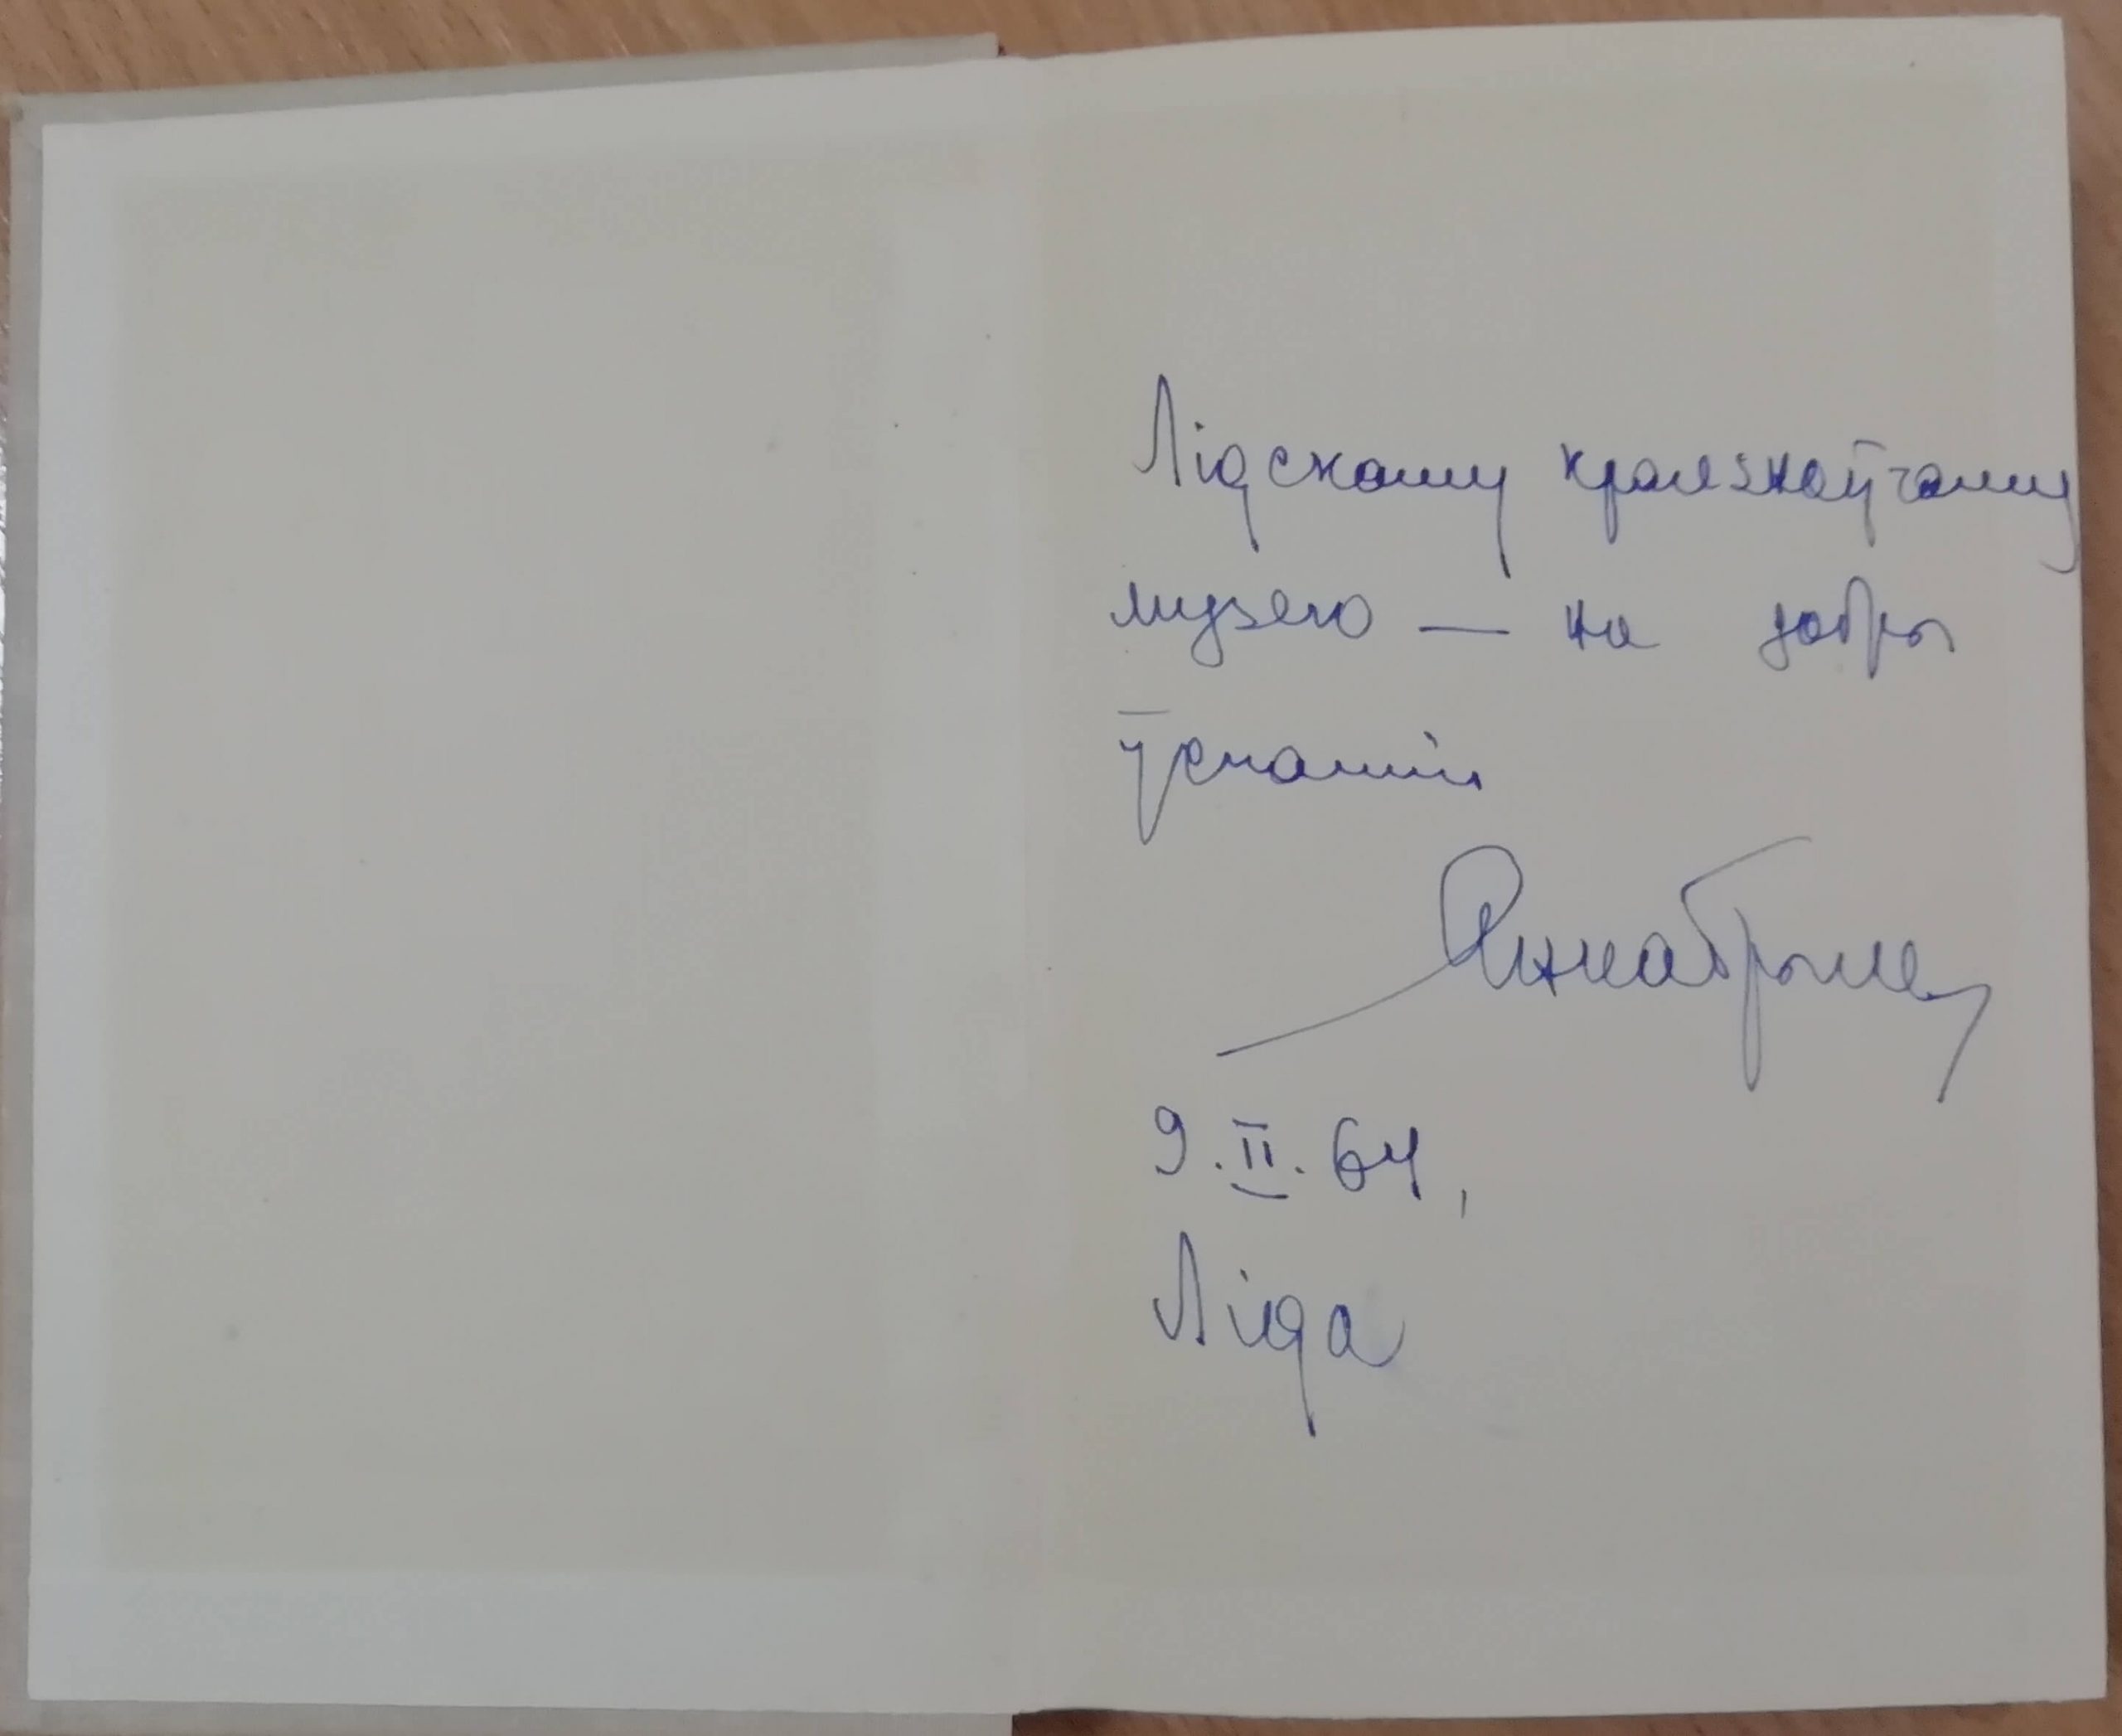 Лідскаму краязнаўчаму
музею — на добры
ўспамін
Янка Брыль
9.II.64,
Ліда